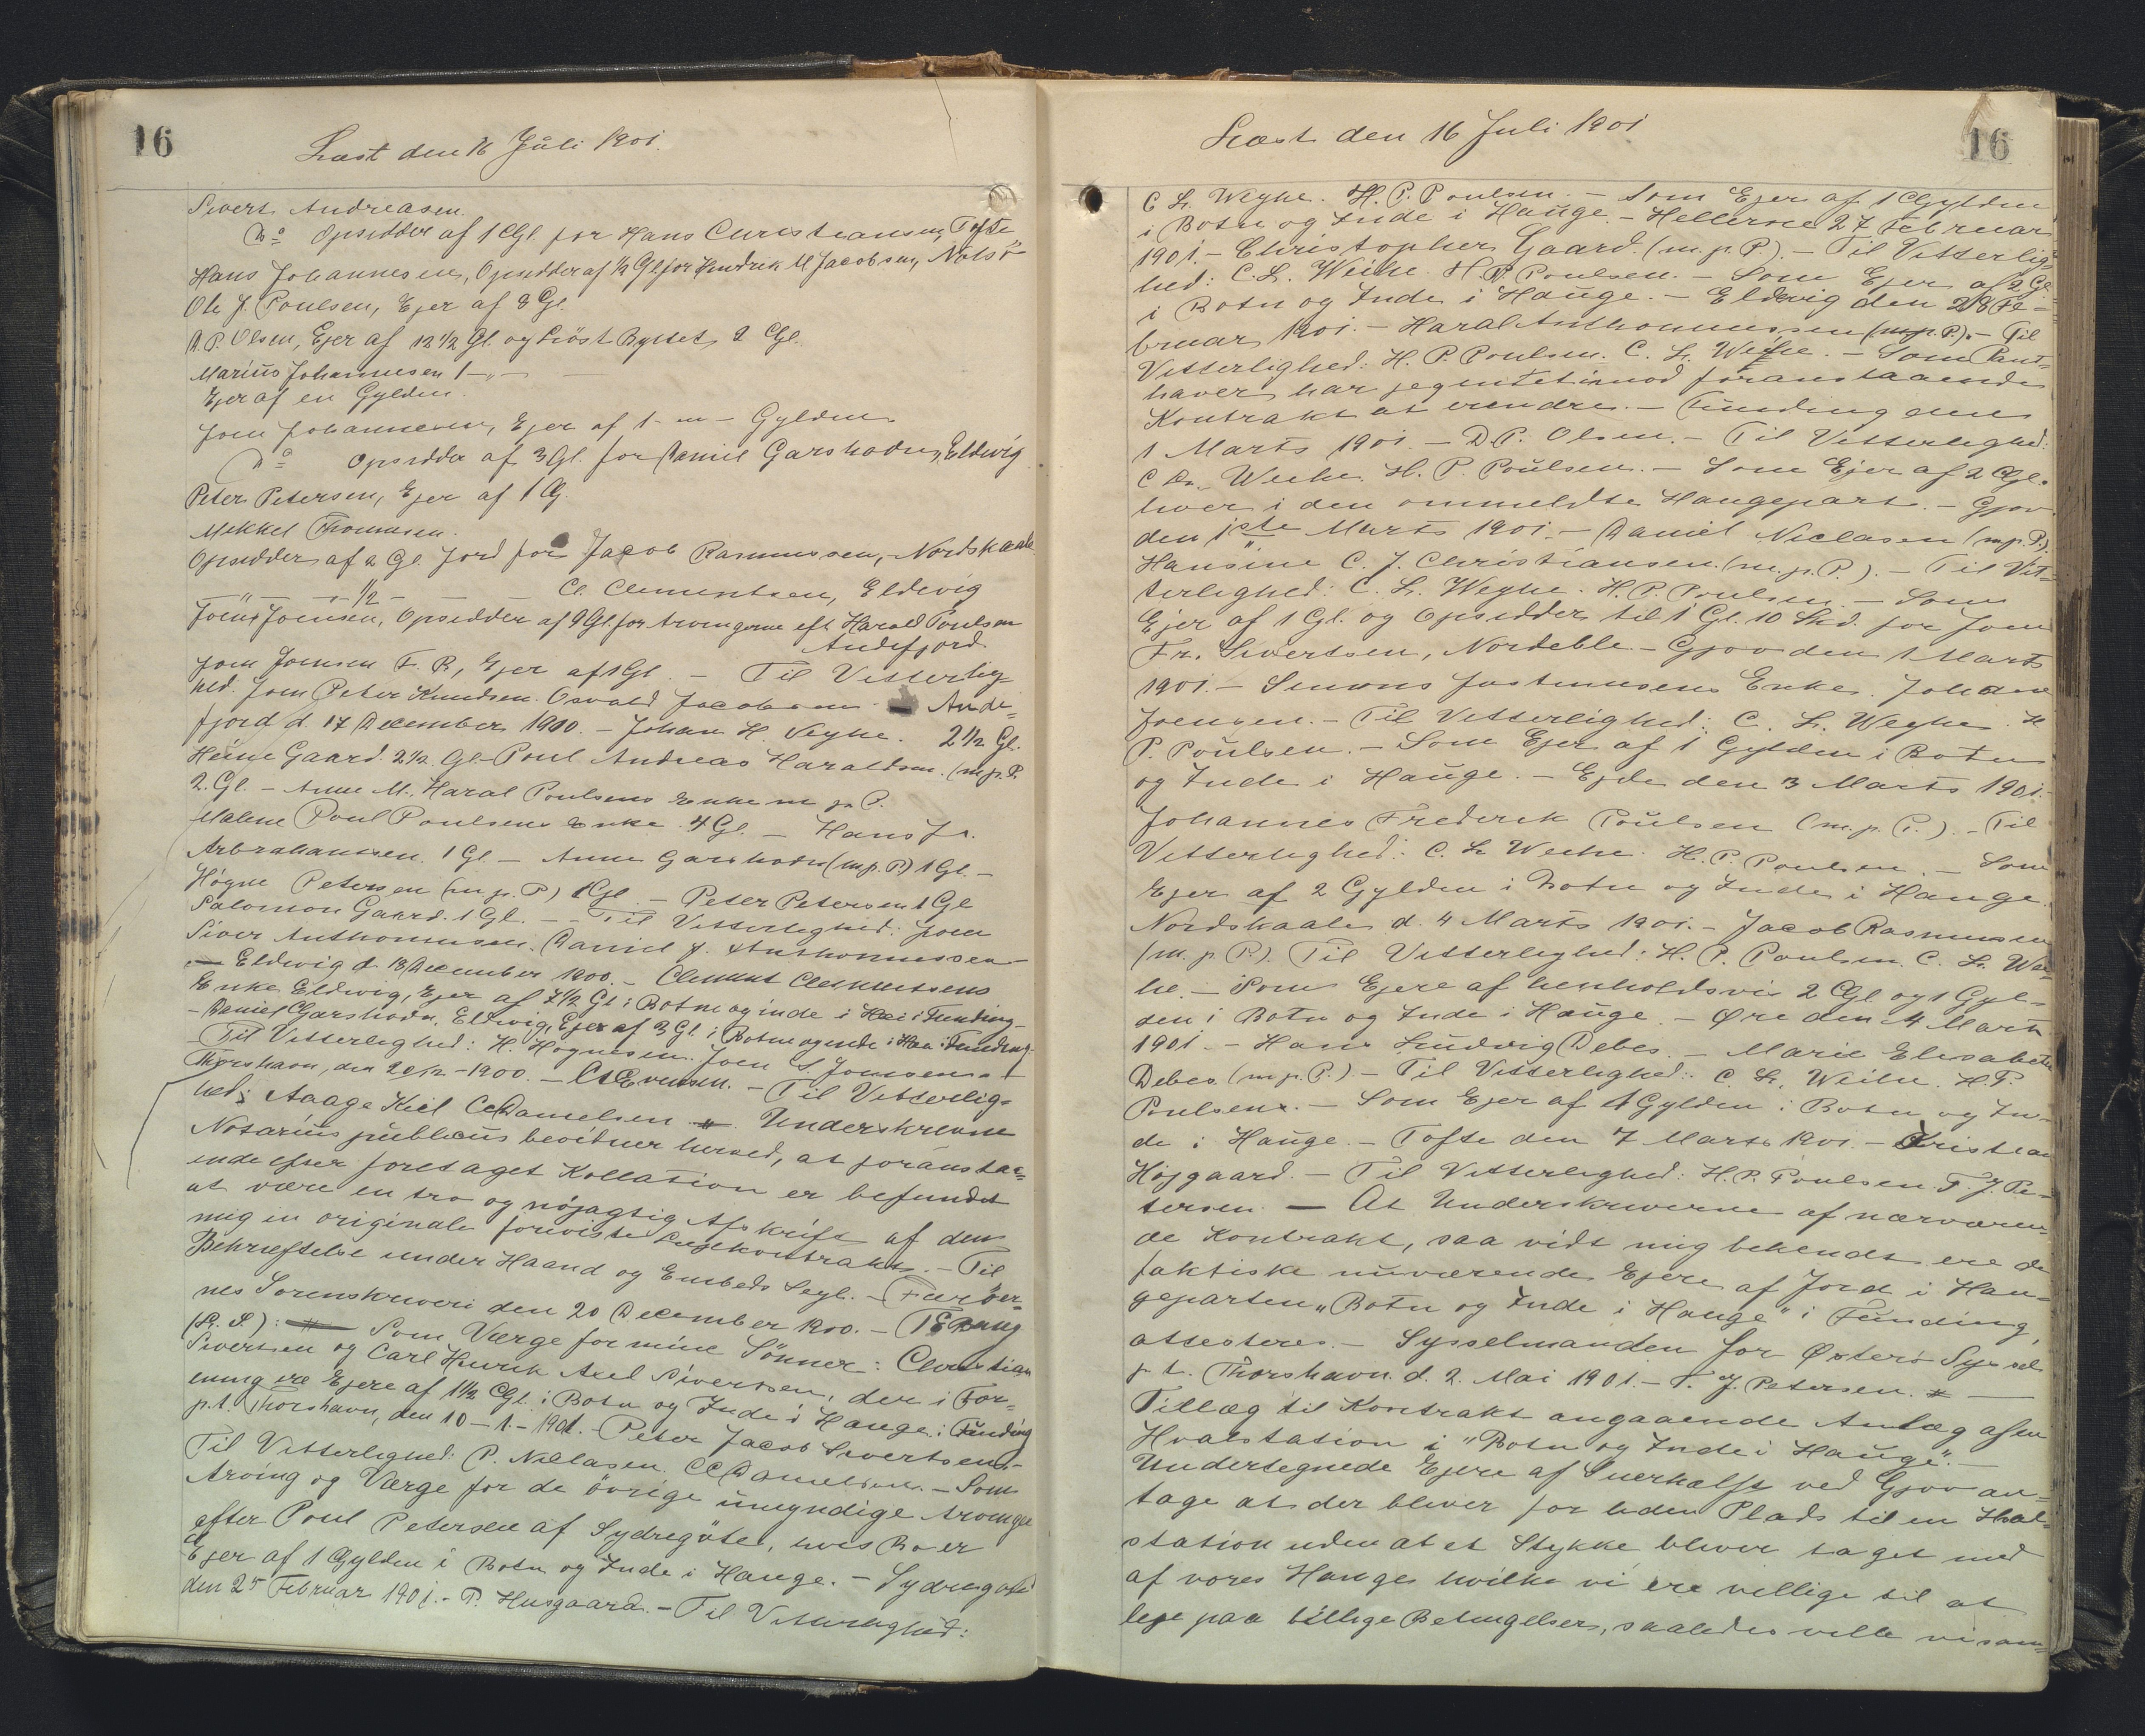 16
Læst den 16 Juli 1901.
Sivert Andreasen.
Do Opsidder af 1 Gl. for Hans Christiansen, Tofte
Hans Johannesen, Opsidder af 1/2 Gl for Hendrik M Jacobsen, Nolsö
Ole J. Poulsen, Ejer af 8 Gl.
D. P. Olsen, Ejer af 12 1/2 Gl. og Bygget 2 Gl.
Marius Johannesen 1 — " —
Ejer af en Gylden.
Joen Johannesen, Ejer af 1 - Gylden
Do Opsidder af 3 Gl. for Daniel Garshodn, Eldevig
Peter Petersen, Ejer af 1 G.
Mikkel Thomasen.
Opsidder af 2 Gl. Jord for Jacob Rasmussen, Nordskaale
— " — 1/2 — Cl. Clementsen, Eldevig
Joen Joensen, Opsidder af 9 Gl. for Arvingerne eft Harald Poulsen
Andefjord
Joen Joensen F. B, Ejer af 1 Gl. — Til Vitterlig
hed. Joen Peter Knudsen. Osvald Jacobsen. Ande=
fjord d. 17 December 1900. — Johan H. Veyhe. 2 1/2 Gl.
Heine Gaard. 2 1/2 Gl. - Poul Andreas Haraldsen. (m. p. P.
2. Gl. — Anne M. Haral Poulsens Enke m. p. P.
Malene Poul Poulsens Enke. 4 Gl. — Hans Jr.
Arbrahamsen. 1 Gl — Anne Garshodn (m. p. P.) 1 Gl. —
Högne Petersen (m. p. P) 1 Gl. — Peter Petersen 1 Gl
Salomon Gaard. 1 Gl. — Til Vitterlighed: Joen
Siver Anthoniussen. Daniel J. Anthoniussen
— Eldevig d. 18 December 1900. — Clement Clementsens
Enke Eldevig, Ejer af 7 1/2 Gl i Botne og inde i Hei i Funding —
— Daniel Garshodn, Eldevig, Ejer af 3 Gl. i Botne og inde i Hau i Funding.
— Til Vitterlighed: H. Högnesen. Joen S. Joensen. —
Thorshavn, den 20/12 - 1900. — Chr Evensen. — Til Vitterlig=
hed: Aage Kiel CC Danielsen. Underskrevne
Notarius publicus bevidner herved, at foransta=
ende efter foretaget Kollation er befundet
at være en tro og nöjagtig Afskrift af den
mig in originale foreviste Lejekontrakt. — Til
Bekræftelse under Haand og Embeds Segl. — Færöer=
nes Sorenskriveri den 20 December 1900. — T Bang
(L. S.): Som Værge for mine Sönner: Christian
Sivertsen og Carl Henrik Axel Sivertsen, der i For=
ening ere Ejere af 1 1/2 Gl. i Botn og Inde i Hauge i Funding
p. t. Thorshavn, den 10 - 1. - 1901. Peter Jacob Sivertsen. —
Til Vitterlighed: P. Niclasen. CC Danielsen. — Som
Arving og Værge for de övrige umyndige Arvinger
efter Poul Petersen af Sydregöte, hvis Bo er
Ejer af 1 Gylden i Botn og Inde i Hauge. — Sydregöte
den 25 Februar 1901. - P. Husgaard. — Til Vitterlighed:
16
Læst den 16 Juli 1901
C L. Weyhe. H. P. Poulsen. — Som Ejer af 1 Gylden
i Botn og Inde i Hauge. — Hellerne 27 Februar
1901. — Christopher Gaard. (m. p. P.). — Til Vitterlig=
hed: C. L. Weihe. H. P. Poulsen. — Som Ejer af 2 Gl.
i Botn og Inde i Hauge. — Eldevig den 28 Fe=
bruar 1901. — Haral Anthoniussen (m. p. P.). — Til
Vitterlighed: H. P. Poulsen. C. L. Weihe. — Som Pant=
haver har jeg intet imod foranstaaende
Kontrakt at erindre. — Funding den
1 Marts 1901. — D. P. Olsen. — Til Vitterlighed:
C L. Weihe. H. P. Poulsen. — Som Ejer af 2 Gl.
hver i den ommeldte Haugepart. — Gjov
den 1ste Marts 1901. — Daniel Niclasen (m. p. P.).
Hansine C. J. Christiansen. (m. p. P.). — Til Vit=
terlighed: C. L. Weyhe. H. P. Poulsen. — Som
Ejer af 1 Gl. og Opsidder til 1 Gl. 10 Skd. for Joen
Fr. Sivertsen, Nordeble. — Gjov den 1 Marts
1901. — Simons Justinussens Enke. Johan
Joensen. — Til Vitterlighed: C. L. Weyhe. H
P. Poulsen. — Som Ejer af 1 Gylden i Botn
og Inde i Hauge. — Ejde den 3 Marts 1901. —
Johannes Frederik Poulsen (m. p. P.). — Til
Vitterlighed: C. L. Weihe. H. P. Poulsen. — Som
Ejer af 2 Gylden i Botn og Inde i Hauge.
Nordskaale d. 4 Marts 1901. — Jacob Rasmussen
(m. p. P.). Til Vitterlighed: H. P. Poulsen. C. L. Wei=
he. — Som Ejere af henholdsvis 2 Gl og 1 Gyl=
den i Botn og Inde i Hauge. — Øre den 4 Marts
1901. — Hans Ludvig Debes. — Marie Elisabeth
Debes. (m. p. P.). — Til Vitterlighed: C. L. Weihe. H. P.
Poulsen. — Som Ejer af 4 Gylden i Botn og In=
de i Hauge. — Tofte den 7 Marts 1901. — Kristian
Höjgaard. — Til Vitterlighed: H. P. Poulsen. F. J. Pe=
tersen. — At Underskriverne af nærværen=
de Kontrakt, saa vidt mig bekendt ere de
faktiske nuværende Ejere af Jord i Hau=
geparten „Botn og Inde i Hauge" i Funding,
attesteres. — Sysselmanden for Østerö Syssel
p. t. Thorshavn. d. 2. Mai 1901. — F. J. Petersen. —
Tillæg til Kontrakt angaaende Anlæg af en
Hvalstation i „Botn og Inde i Hauge". —
Undertegnede Ejere af Inerhalft ved Gjov an=
tage at der bliver for liden Plads til en Hval=
station uden at et Stykke bliver taget med
af vores Hauge hvilke vi ere villige til at
leje paa billige Betingelser, saaledes ville vi som=